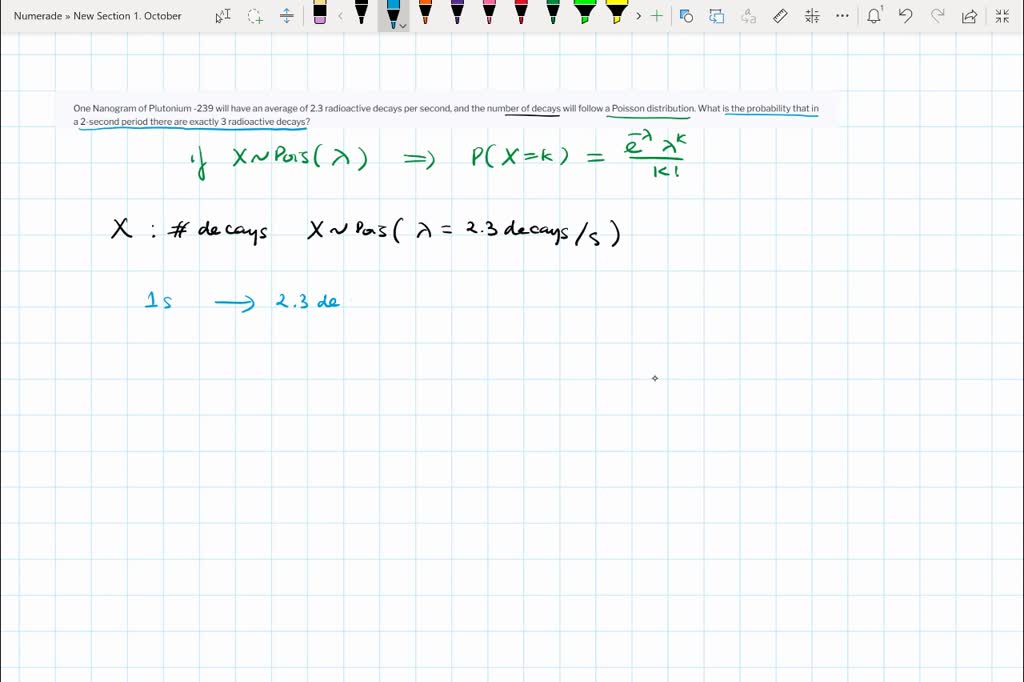 Numerade » New Section 1. October
One Nanogram of Plutonium -239 will have an average of 2.3 radioactive decays per second, and the number of decays will follow a Poisson distribution. What is the probability that in
a 2-second period there are exactly 3 radioactive decays?
if X~Pois(λ) ⇒ P(X=k) = e^-λ λ^k / k!
X : # decays X~Pois( λ = 2.3 decays/s )
1s → 2.3 de